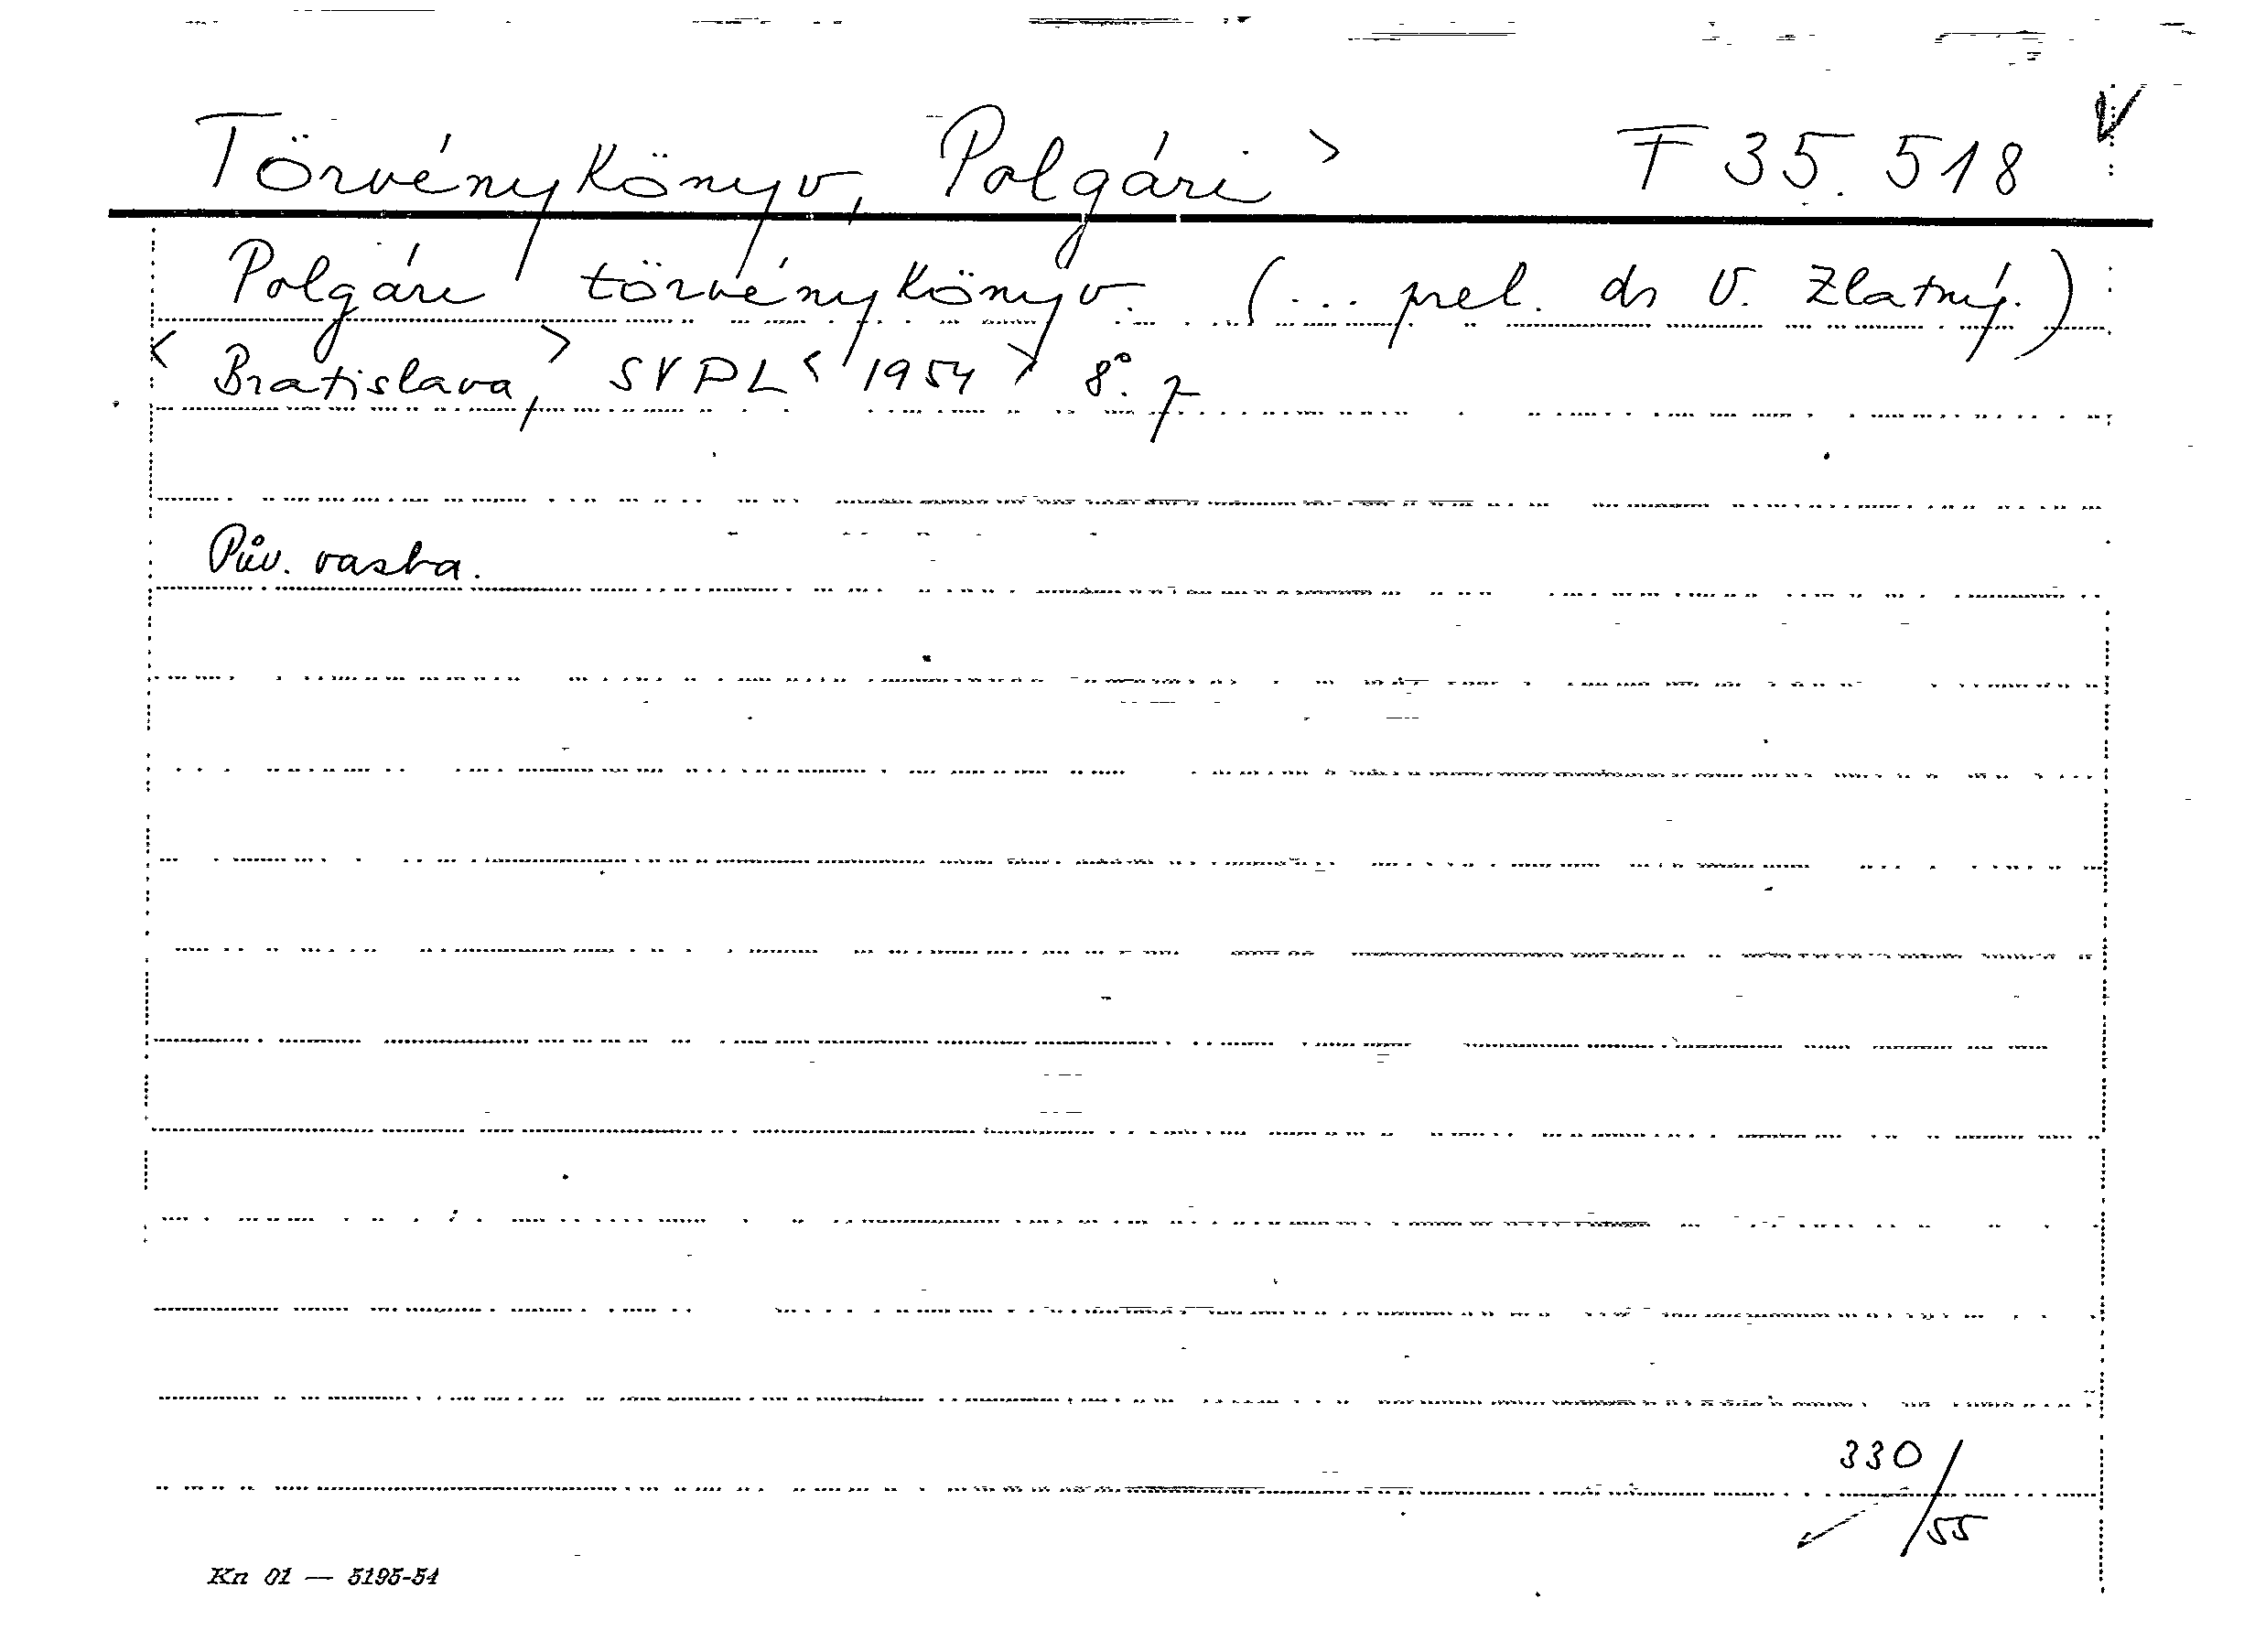 Törvénykönyv, Polgári > F 35.518
Polgári törvénykönyv. (... prel. dr V. Zlatný.)
< Bratislava, > SVPL < 1954 > 8°.
Pův. vazba.
330/55
Kn 01 — 5195-54